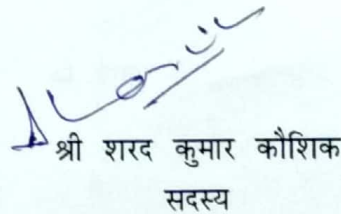 श्री शरद कुमार कौशिक
सदस्य